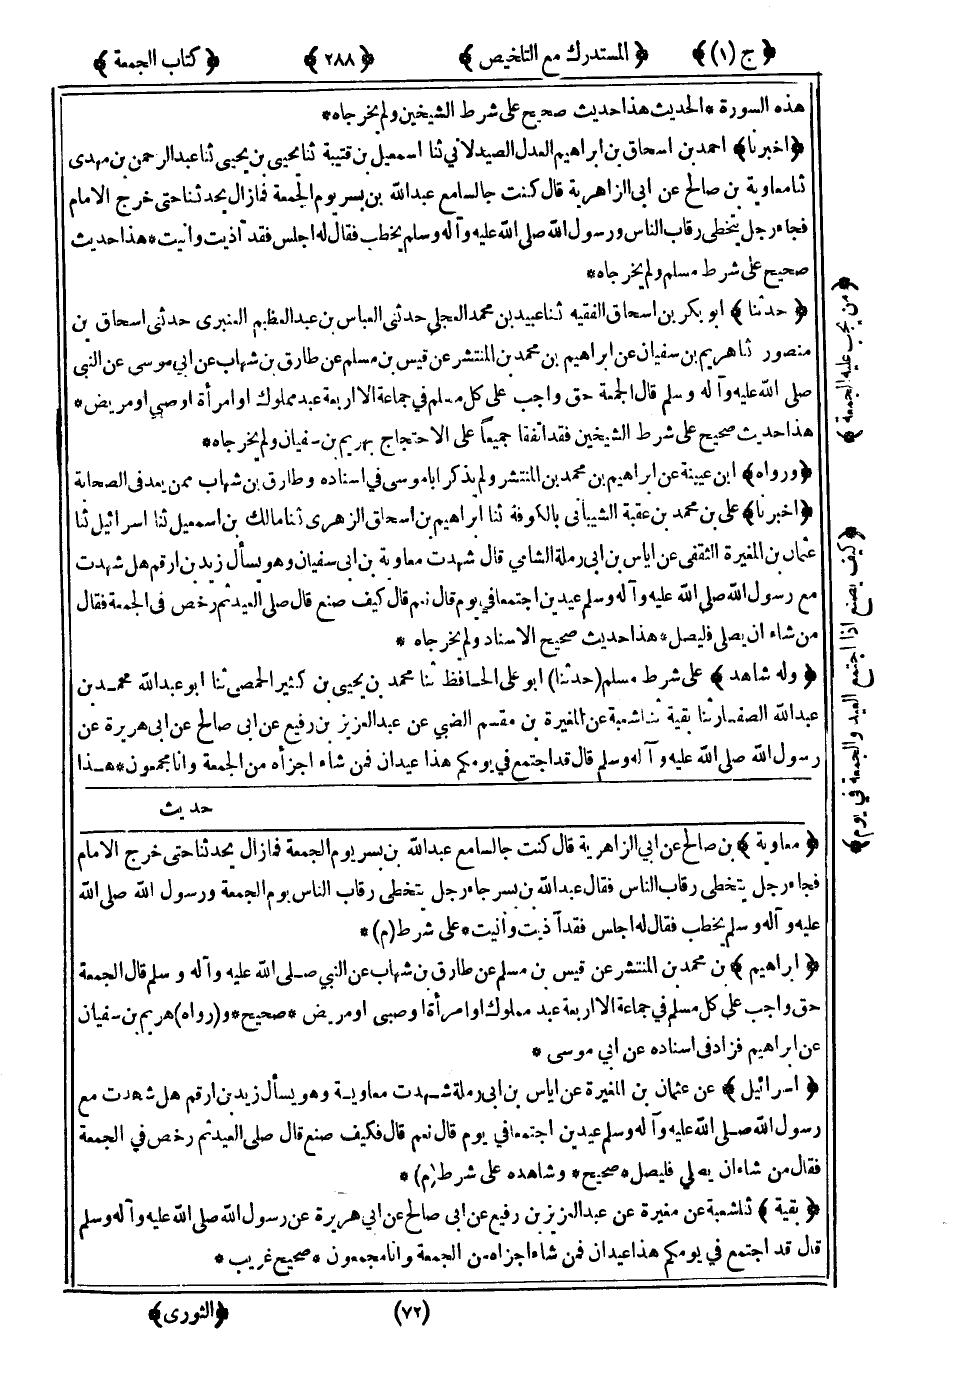 ﴿ ج (١) ﴾ ﴿ المستدرك مع التلخيص ﴾ ﴿ ٢٨٨ ﴾ ﴿ كتاب الجمعة ﴾
هذه السورة * الحديث هذا حديث صحيح على شرط الشيخين ولم يخرجاه *
﴿ اخبرنا ﴾ احمد بن اسحاق بن ابراهيم العدل الصيدلاني ثنا اسمعيل بن قتيبة ثنا يحيى بن يحيى ثنا عبد الرحمن بن مهدى
ثنا معاوية بن صالح عن ابى الزاهرية قال كنت جالسا مع عبد الله بن بسر يوم الجمعة فما زال يحدثنا حتى خرج الامام
فجاء رجل يتخطى رقاب الناس ورسول الله صلى الله عليه وآله وسلم يخطب فقال له اجلس فقد آذيت وانيت * هذا حديث
صحيح على شرط مسلم ولم يخرجاه *
﴿ حدثنا ﴾ ابو بكر بن اسحاق الفقيه ثنا عبيد بن محمد العجلي حدثنى العباس بن عبد العظيم العنبرى حدثنى اسحاق بن
منصور ثنا هريم بن سفيان عن ابراهيم بن محمد بن المنتشر عن قيس بن مسلم عن طارق بن شهاب عن ابي موسى عن النبى
صلى الله عليه وآله وسلم قال الجمعة حق واجب على كل مسلم في جماعة الا اربعة عبد مملوك او امرأة او صبي او مريض *
هذا حديث صحيح على شرط الشيخين فقد اتفقا جميعاً على الاحتجاج بهريم بن سفيان ولم يخرجاه *
﴿ ورواه ﴾ ابن عيينة عن ابراهيم بن محمد بن المنتشر ولم يذكر ابا موسى في اسناده وطارق بن شهاب ممن يعد فى الصحابة
﴿ اخبرنا ﴾ على بن محمد بن عقبة الشيبانى بالكوفة ثنا ابراهيم بن اسحاق الزهرى ثنا مالك بن اسمعيل ثنا اسرائيل ثنا
عثمان بن المغيرة الثقفى عن اياس بن ابى رملة الشامي قال شهدت معاوية بن ابى سفيان وهو يسأل زيد بن ارقم هل شهدت
مع رسول الله صلى الله عليه وآله وسلم عيدين اجتمعا في يوم قال نعم قال كيف صنع قال صلى العيد ثم رخص فى الجمعة فقال
من شاء ان يصلى فليصل * هذا حديث صحيح الاسناد ولم يخرجاه *
﴿ وله شاهد ﴾ على شرط مسلم (حدثنا) ابو على الحافظ ثنا محمد بن يحيى بن كثير الحمصى ثنا ابو عبد الله محمد بن
عبد الله الصفار ثنا بقية ثنا شعبة عن المغيرة بن مقسم الضبي عن عبد العزيز بن رفيع عن ابى صالح عن ابى هريرة عن
رسول الله صلى الله عليه وآله وسلم قال قد اجتمع في يومكم هذا عيدان فمن شاء اجزأه من الجمعة وانا مجمعون * هذا
حديث
﴿ معاوية ﴾ بن صالح عن ابي الزاهرية قال كنت جالسا مع عبد الله بن بسر يوم الجمعة فما زال يحدثنا حتى خرج الامام
فجاء رجل يتخطى رقاب الناس فقال عبد الله بن بسر جاء رجل يتخطى رقاب الناس يوم الجمعة ورسول الله صلى الله
عليه وآله وسلم يخطب فقال له اجلس فقد آذيت وأنيت * على شرط (م) *
﴿ ابراهيم ﴾ بن محمد بن المنتشر عن قيس بن مسلم عن طارق بن شهاب عن النبي صلى الله عليه وآله وسلم قال الجمعة
حق واجب على كل مسلم في جماعة الا اربعة عبد مملوك او امرأة او صبى او مريض * صحيح * و (رواه) هريم بن سفيان
عن ابراهيم فزاد فى اسناده عن ابي موسى *
﴿ اسرائيل ﴾ عن عثمان بن المغيرة عن اياس بن ابى رملة شهدت معاوية وهو يسأل زيد بن ارقم هل شهدت مع
رسول الله صلى الله عليه وآله وسلم عيدين اجتمعا في يوم قال نعم قال فكيف صنع قال صلى العيد ثم رخص في الجمعة
فقال من شاء ان يصلي فليصل * صحيح * وشاهده على شرط (م) *
﴿ بقية ﴾ ثنا شعبة عن مغيرة عن عبد العزيز بن رفيع عن ابى صالح عن ابي هريرة عن رسول الله صلى الله عليه وآله وسلم
قال قد اجتمع في يومكم هذا عيدان فمن شاء اجزاه من الجمعة وانا مجمعون * صحيح غريب *
﴿ من يجب عليه الجمعة ﴾
﴿ كيف يصنع اذا اجتمع العيد والجمعة في يوم ﴾
(٧٢) ﴿ الثورى ﴾